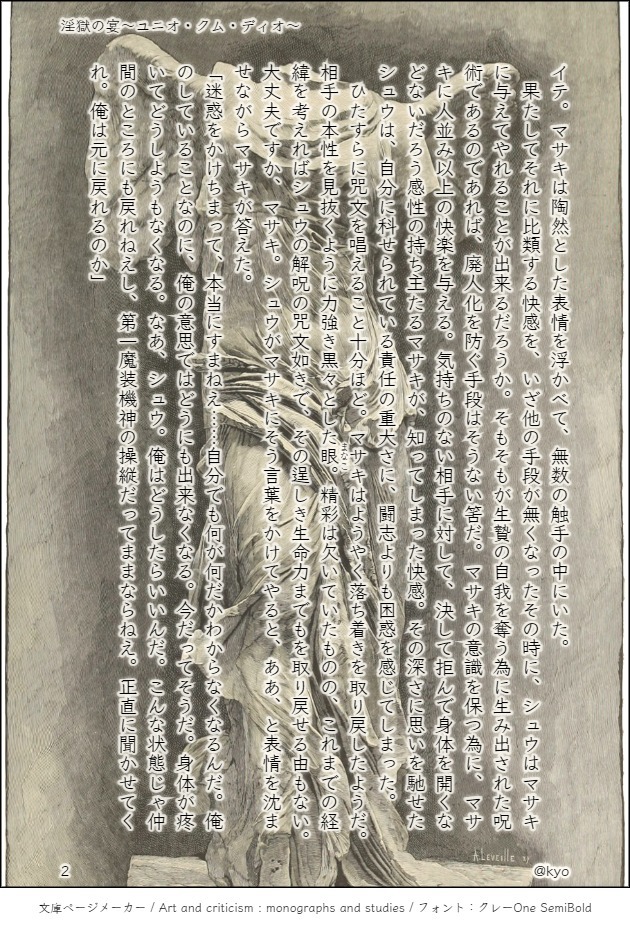 淫獄の宴～ユニオ・クム・ディオ～
イテ。マサキは陶然とした表情を浮かべて、無数の触手の中にいた。
果たしてそれに比類する快感を、いざ他の手段が無くなったその時に、シュウはマサキ
に与えてやれることが出来るだろうか。そもそもが生贄の自我を奪う為に生み出された呪
術であるのであれば、廃人化を防ぐ手段はそうない筈だ。マサキの意識を保つ為に、マサ
キに人並み以上の快楽を与える。気持ちのない相手に対して、決して拒んで身体を開くな
どないだろう感性の持ち主たるマサキが、知ってしまった快感。その深さに思いを馳せた
シュウは、自分に科せられている責任の重大さに、闘志よりも困惑を感じてしまった。
ひたすらに呪文を唱えること十分ほど。マサキはようやく落ち着きを取り戻したようだ。
相手の本性を見抜くように力強き黒々とした眼。精彩は欠いていたものの、これまでの経
まなこ
緯を考えればシュウの解呪の呪文如きで、その逞しき生命力までもを取り戻せる由もない。
大丈夫ですか、マサキ。シュウがマサキにそう言葉をかけてやると、ああ、と表情を沈ま
せながらマサキが答えた。
「迷惑をかけちまって、本当にすまねえ……自分でも何が何だかわからなくなるんだ。俺
のしていることなのに、俺の意思ではどうにも出来なくなる。今だってそうだ。身体が疼
いてどうしようもなくなる。なあ、シュウ。俺はどうしたらいいんだ。こんな状態じゃ仲
間のところにも戻れねえし、第一魔装機神の操縦だってままならねえ。正直に聞かせてく
れ。俺は元に戻れるのか」
A LEVEILLE
2
@kyo
文庫ページメーカー / Art and criticism : monographs and studies / フォント：クレーOne SemiBold